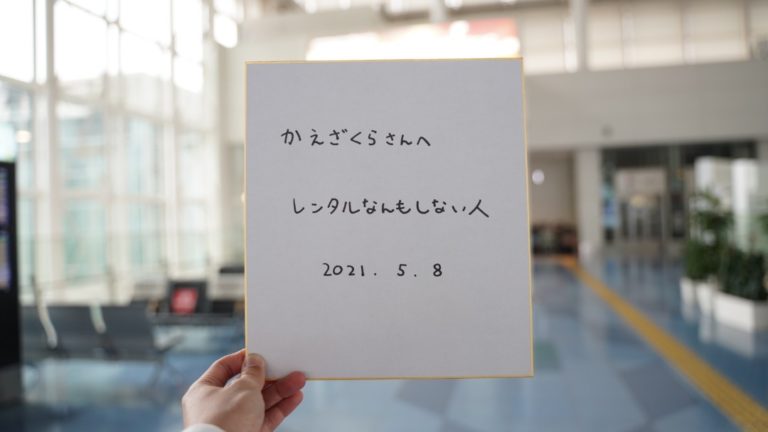 かえざくらさんへ
レンタルなんもしない人
2021. 5. 8